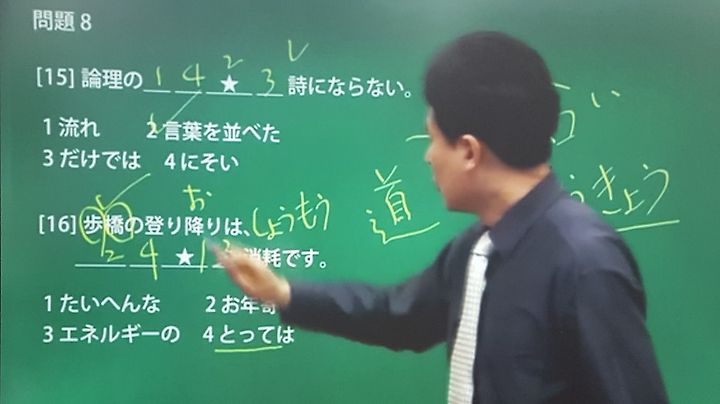 問題8
[15] 論理の 1 4 2★ 3 詩にならない。
1 流れ 2 言葉を並べた
3 だけでは 4 にそい
お
[16] 歩橋の登り降りは、しょうもう
2 4 ★1 消耗です。
1 たいへんな 2 お年寄
3 エネルギーの 4 とっては
道
きょう